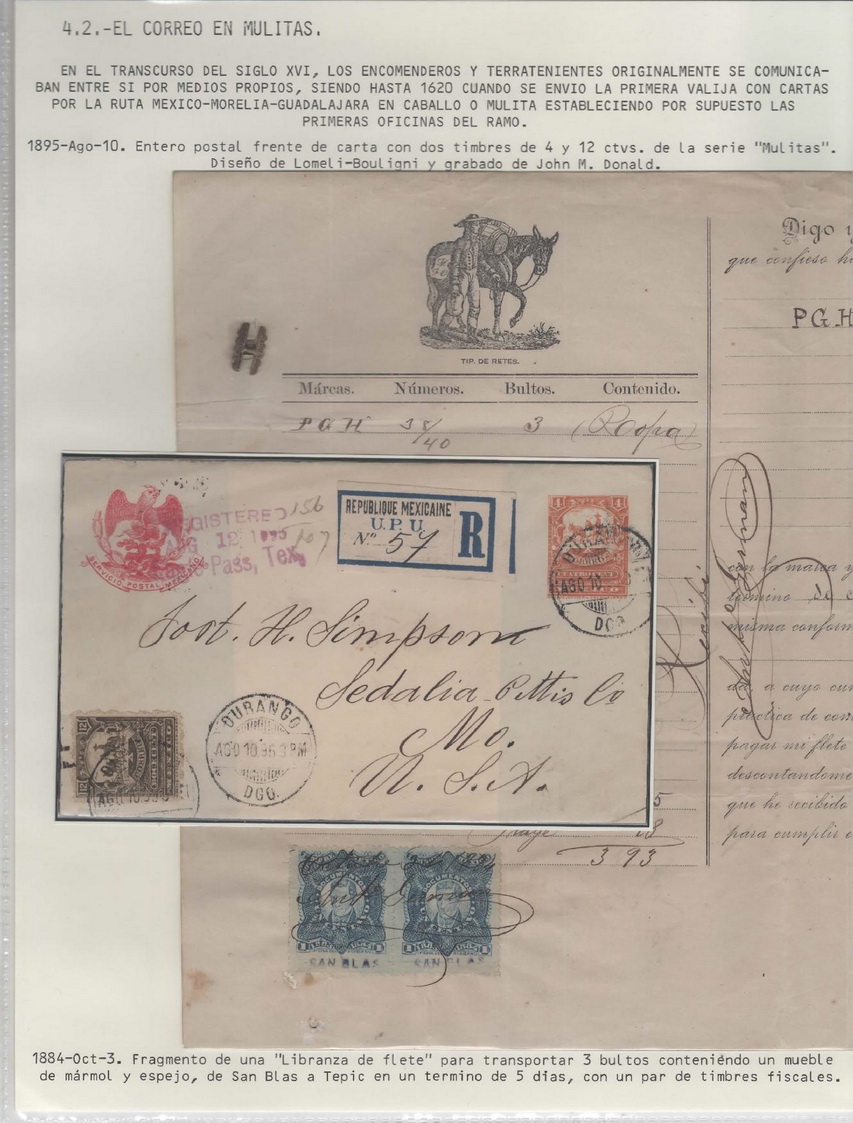 4.2.-EL CORREO EN MULITAS.
EN EL TRANSCURSO DEL SIGLO XVI, LOS ENCOMENDEROS Y TERRATENIENTES ORIGINALMENTE SE COMUNICA-
BAN ENTRE SI POR MEDIOS PROPIOS, SIENDO HASTA 1620 CUANDO SE ENVIO LA PRIMERA VALIJA CON CARTAS
POR LA RUTA MEXICO-MORELIA-GUADALAJARA EN CABALLO O MULITA ESTABLECIENDO POR SUPUESTO LAS
PRIMERAS OFICINAS DEL RAMO.
1895-Ago-10. Entero postal frente de carta con dos timbres de 4 y 12 ctvs. de la serie "Mulitas".
Diseño de Lomeli-Bouligni y grabado de John M. Donald.
Digo y
que confieso h
PGH
TIP. DE RETES.
Márcas. Números. Bultos. Contenido.
PGH 38/40 3 (Ropa)
REGISTERED 156
12 1895 107
Pass, Tex.
SERVICIO POSTAL MEXICANO
REPUBLIQUE MEXICAINE
U.P.U.
Nº 57 R
4 4
DURANGO
AGO 10
DGO.
Jost. H. Simpson
Sedalia Pettis Co
Mo.
U. S. A.
12 12
DURANGO
AGO 10 95 3 PM
DGO.
AGO 10
Recibí
con la marca y
término de c
misma conform
da, a cuyo cum
práctica de corr
pagar mi flete
descontandome
que he recibido
para cumplir c
5
18
3 93
SAN BLAS SAN BLAS
1884-Oct-3. Fragmento de una "Libranza de flete" para transportar 3 bultos conteniéndo un mueble
de mármol y espejo, de San Blas a Tepic en un termino de 5 dias, con un par de timbres fiscales.